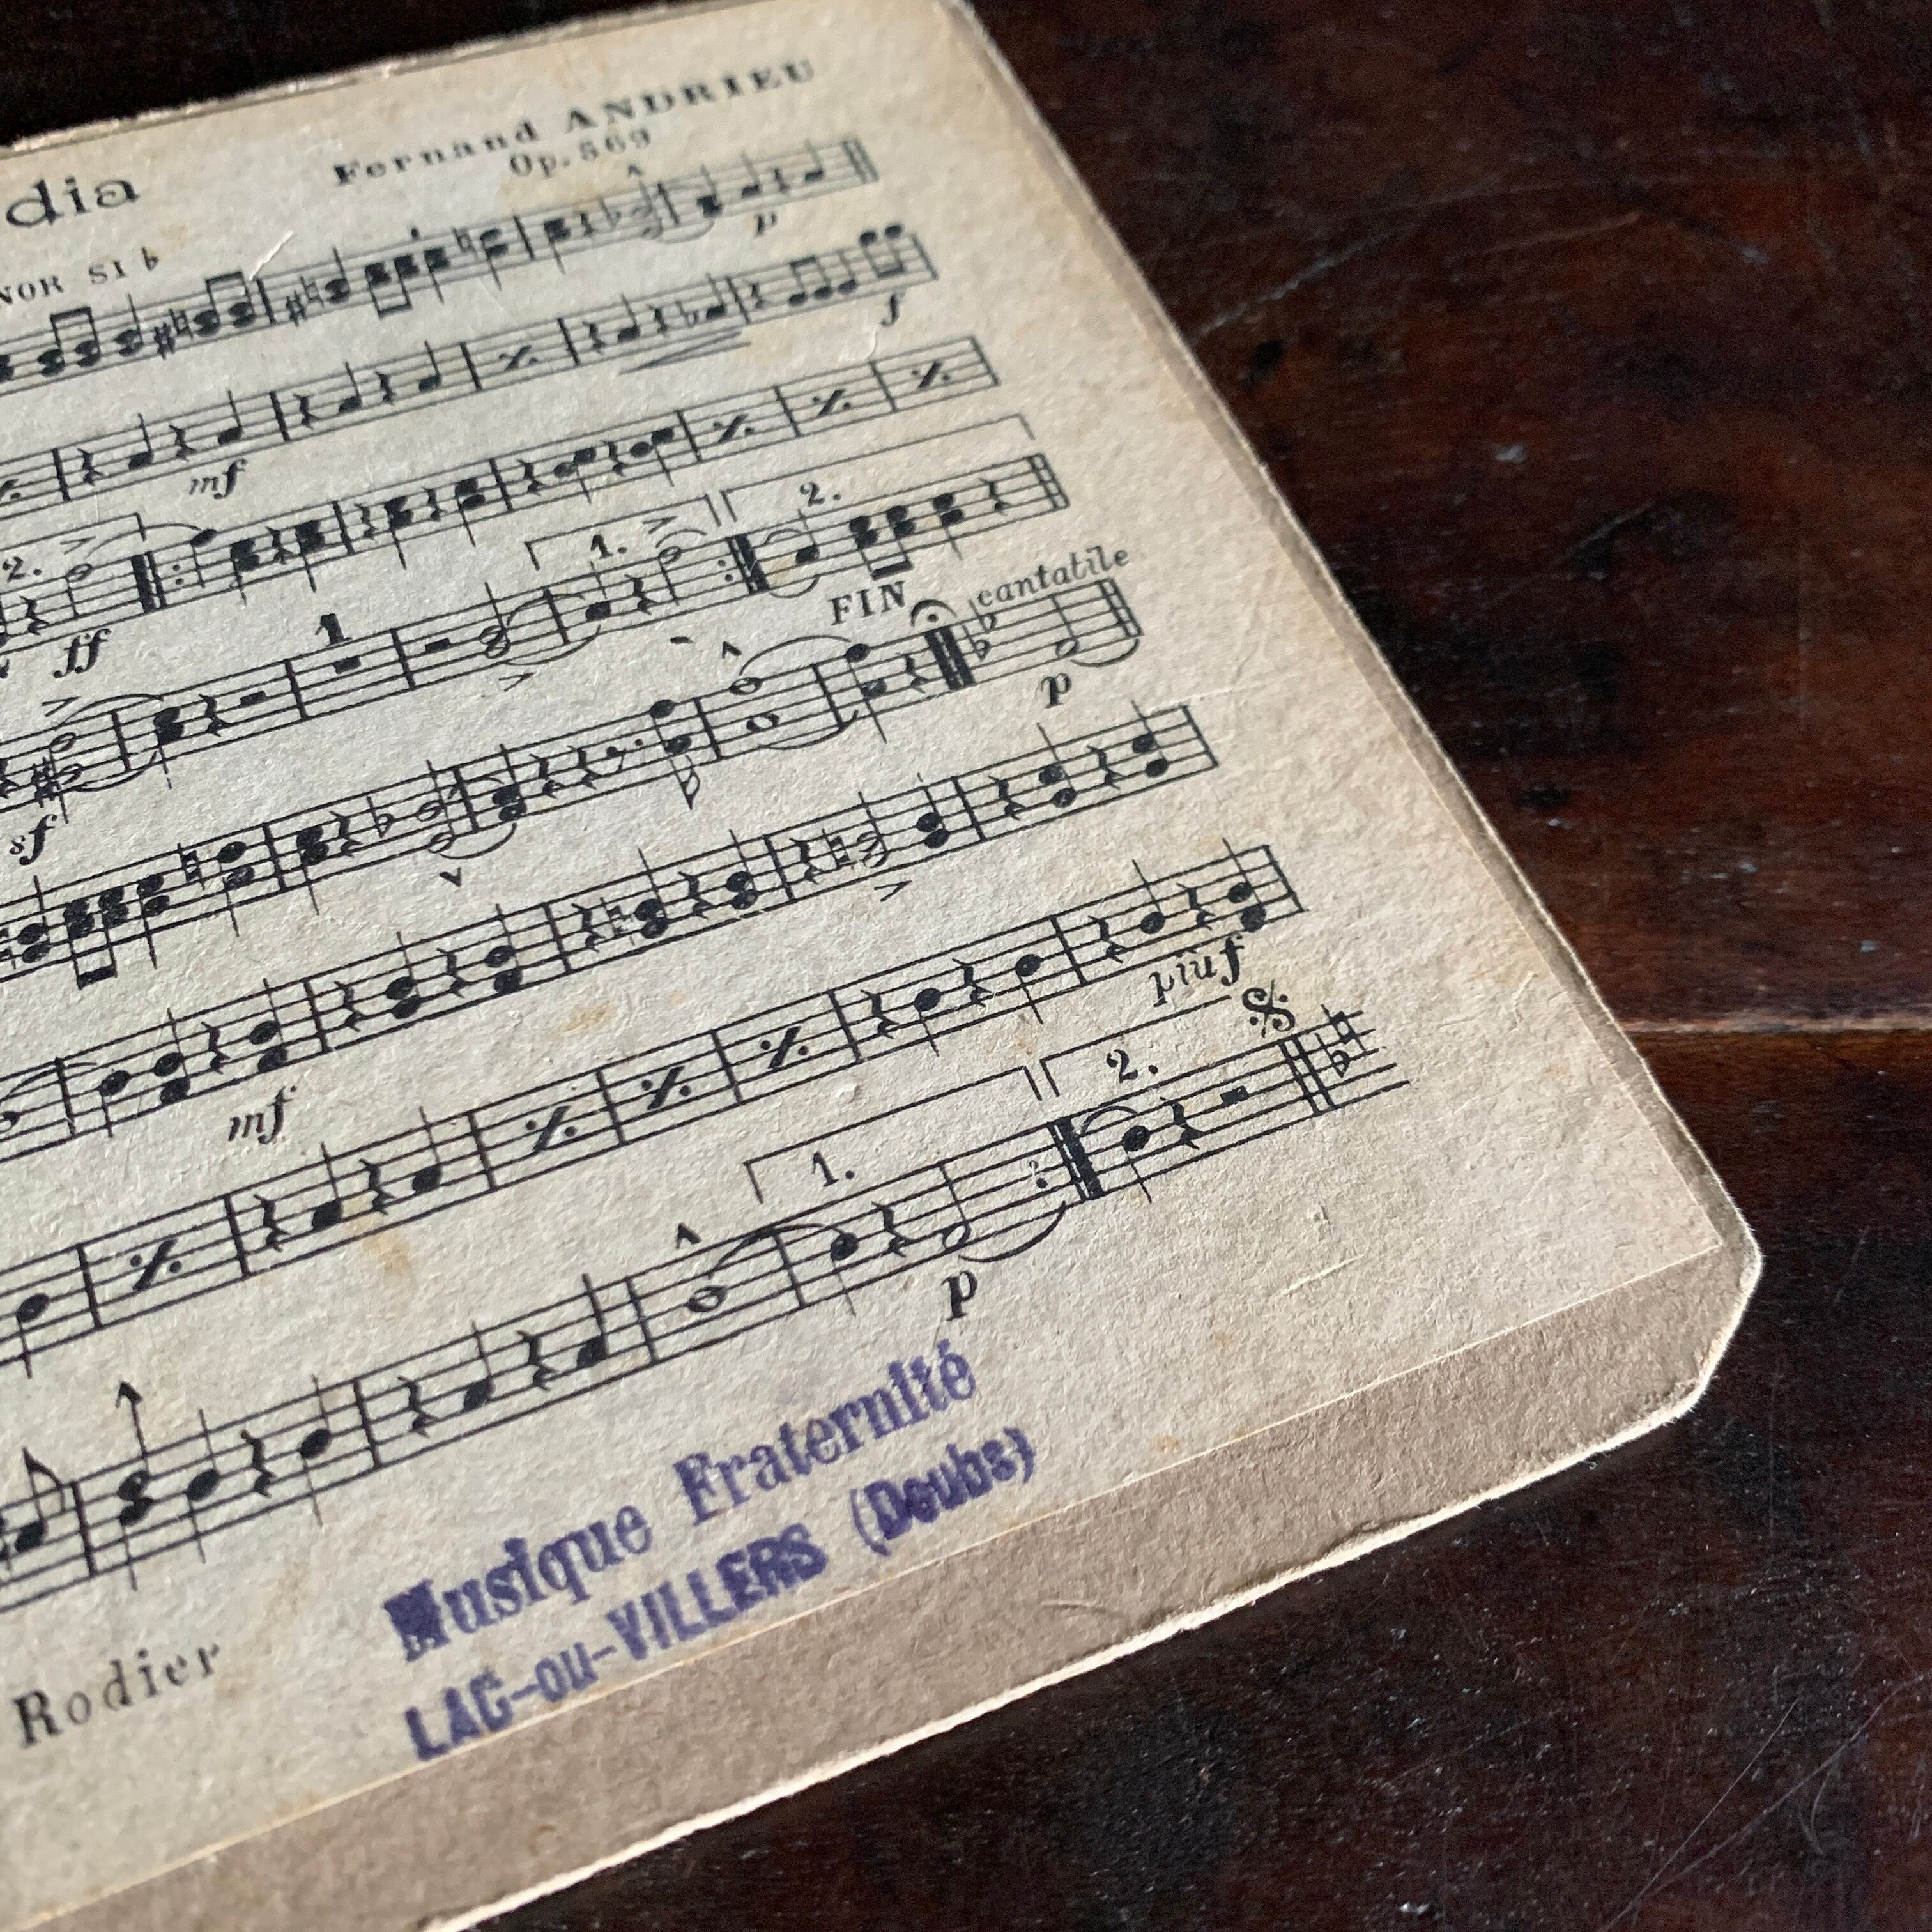 Fernand ANDRIEU
Op. 569
dia
NOR SI♭
p
f
mf
2.
ff
1.
2.
FIN
cantatile
1
p
sf
mf
più f
1.
2.
p
Musique Fraternité
LAC-ou-VILLERS (Doubs)
Rodier